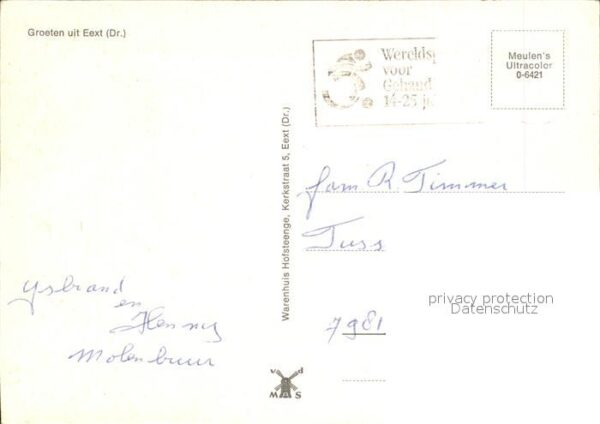 Groeten uit Eext (Dr.)
Wereldsp
voor
Gehand
14-25 j
Meulen's
Ultracolor
0-6421
Warenhuis Hofsteenge, Kerkstraat 5, Eext (Dr.)
fam R. Timmer
Tuss
7981
privacy protection
Datenschutz
Ysbrand
en
Henny
Molenbuur
v d
M S